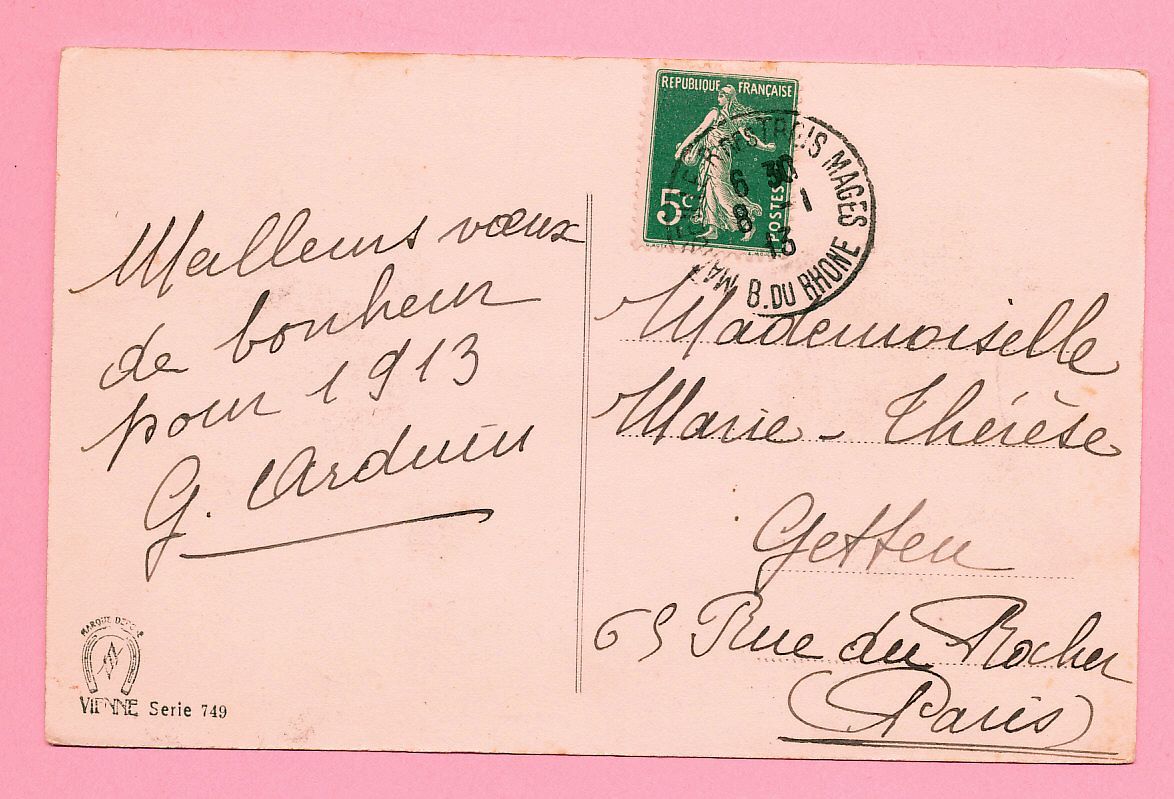 Mailleurs vœux
de bonheur
pour 1913
G. Arduin
MARQUE DEPOSÉ
VIENNE Serie 749
REPUBLIQUE FRANÇAISE
5c
POSTES
MARSEILLE R. DES TROIS MAGES
6 30
8 -1
13
B. DU RHONE
Mademoiselle
Marie-Thérèse
Getten
65 Rue du Rocher
(Paris)